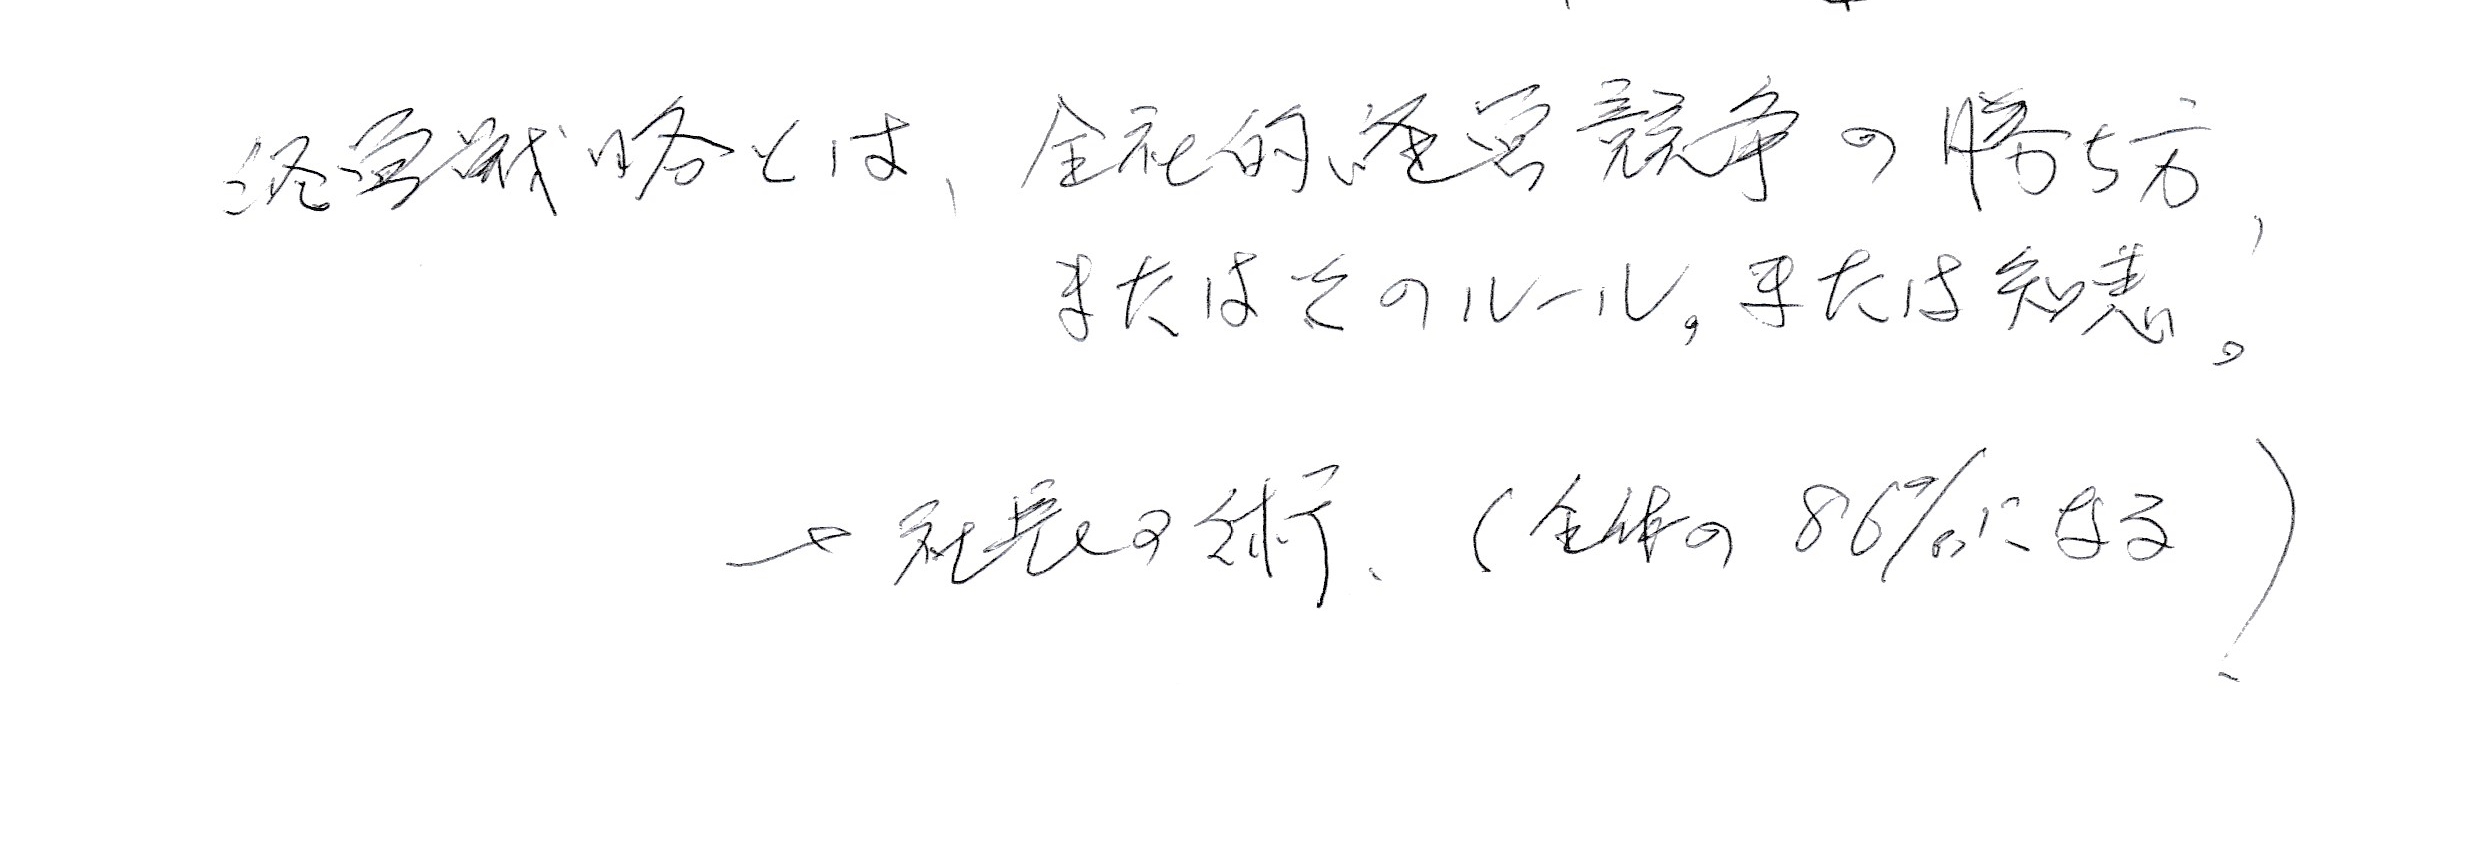 経営戦略とは、全社的経営競争の勝ち方、
またはそのルール。または知恵。
→社長の術、(全体の86%になる)